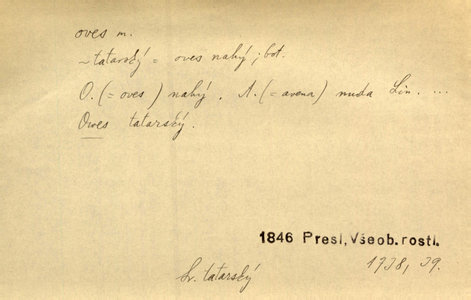 oves m.
~tatarský = oves nahý; bot.
O. (= oves) nahý. A. (= avena) nuda Lin. ...
Owes tatarský.
1846 Presl, Všeob. rostl.
1938, 39.
Sv. tatarský